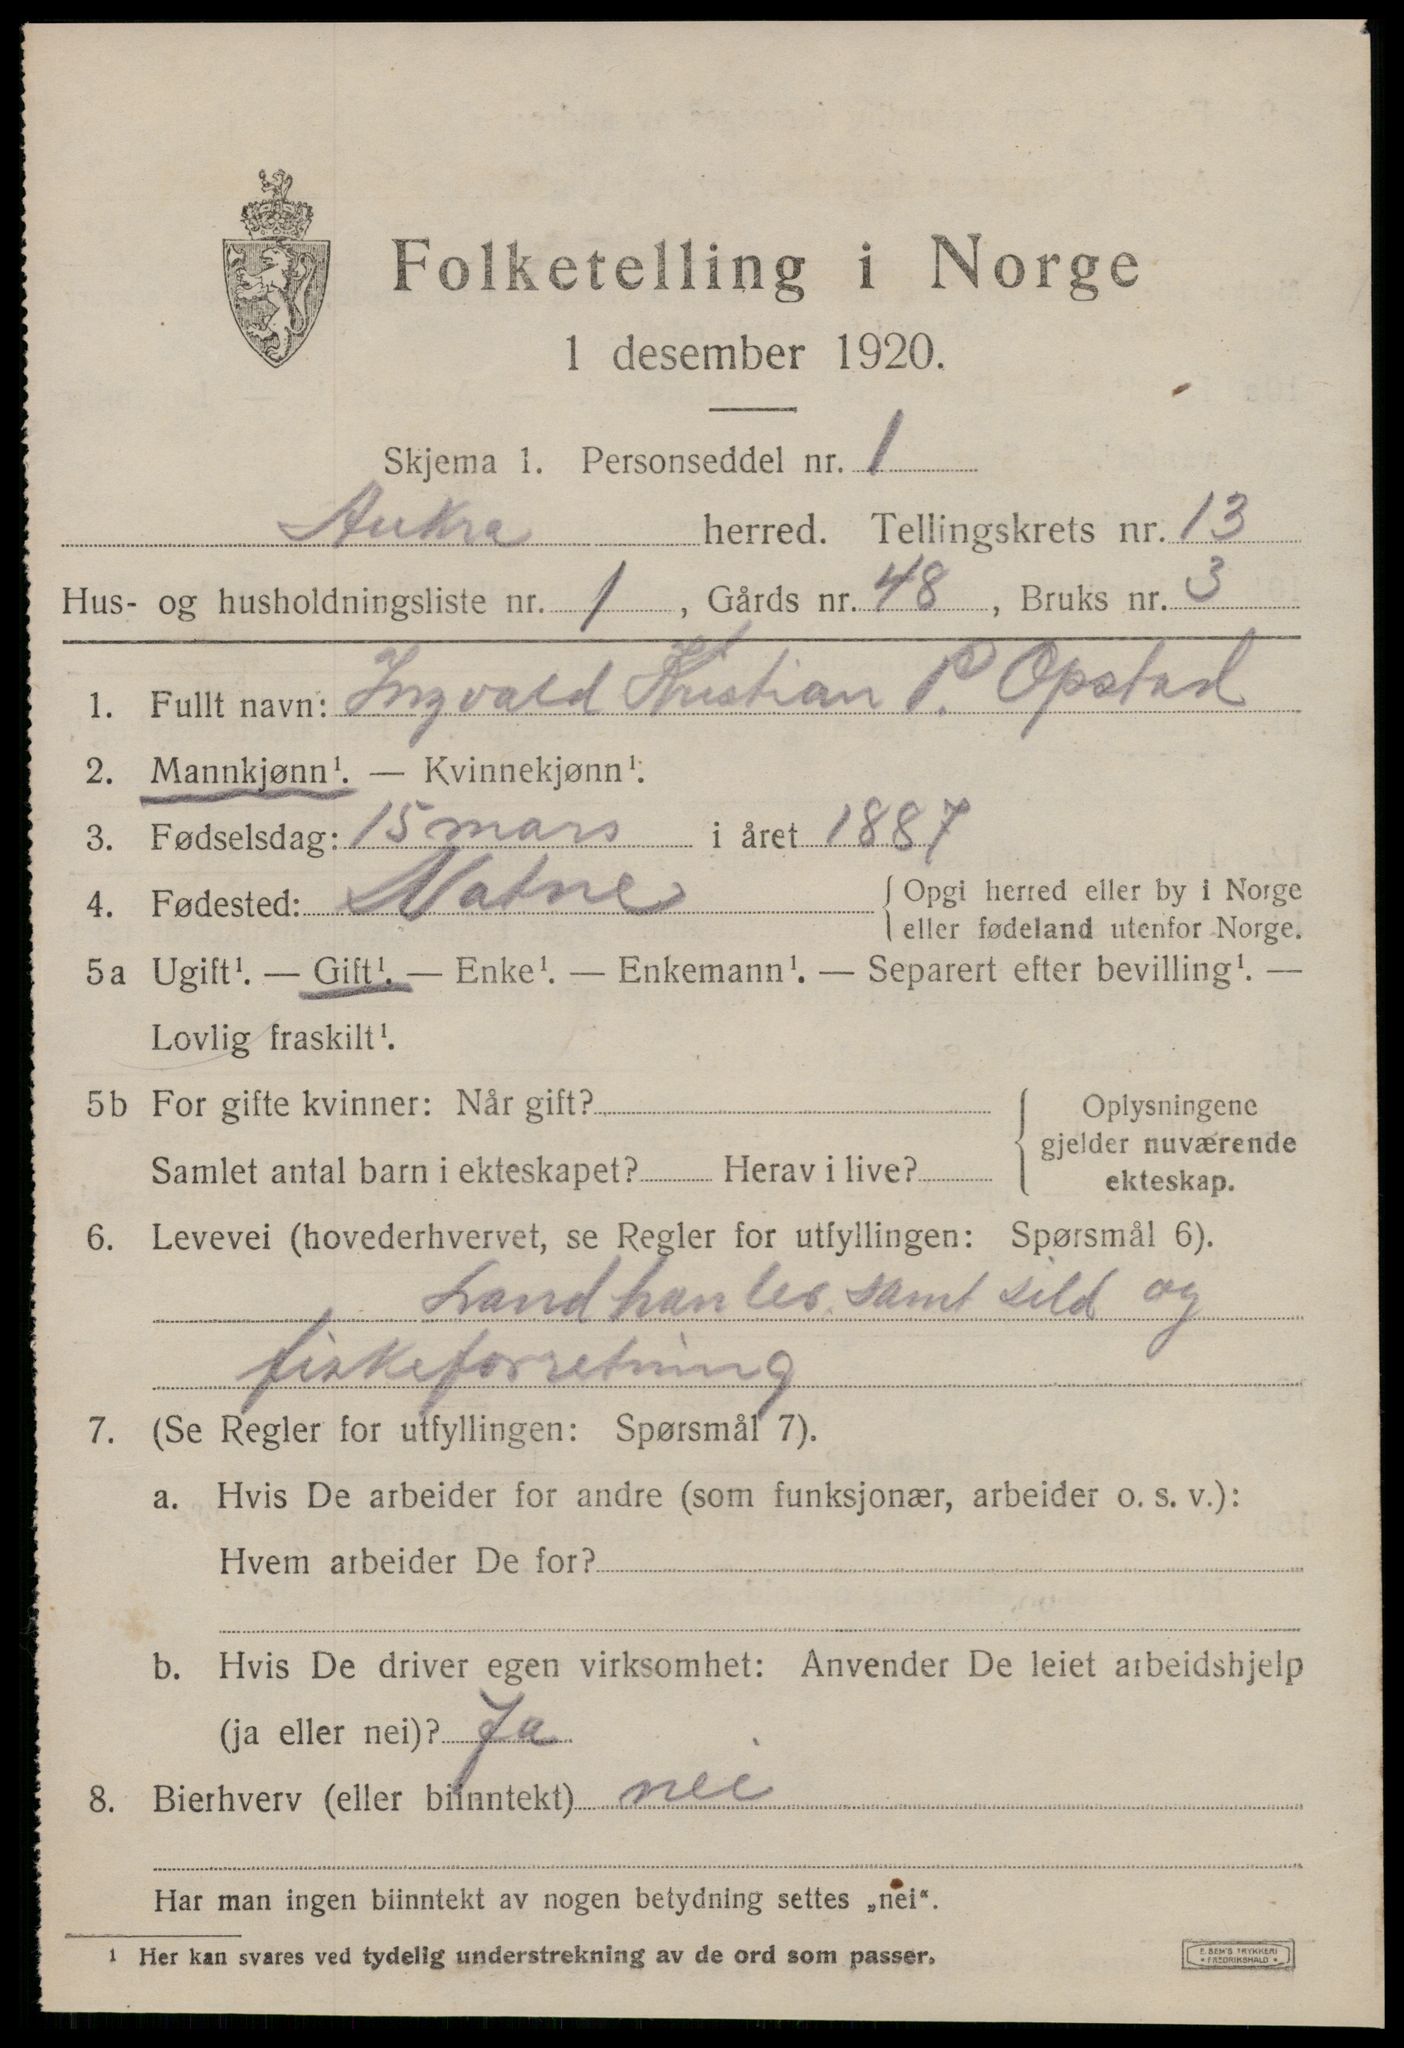 Folketelling i Norge
1 desember 1920.
Skjema 1. Personseddel nr. 1
Aukra herred. Tellingskrets nr. 13
Hus- og husholdningsliste nr. 1, Gårds nr. 48, Bruks nr. 3
1. Fullt navn: Ingvald Kristian P. Opstad
2. Mannkjønn¹. — Kvinnekjønn¹.
3. Fødselsdag: 15 mars i året 1887
4. Fødested: Vatne { Opgi herred eller by i Norge
eller fødeland utenfor Norge.
5a Ugift¹. — Gift¹. — Enke¹. — Enkemann¹. — Separert efter bevilling¹. —
Lovlig fraskilt¹.
5b For gifte kvinner: Når gift? { Oplysningene
gjelder nuværende
Samlet antal barn i ekteskapet? Herav i live? ekteskap.
6. Levevei (hovederhvervet, se Regler for utfyllingen: Spørsmål 6).
Landhanler samt sild og
fiskeforretning
7. (Se Regler for utfyllingen: Spørsmål 7).
a. Hvis De arbeider for andre (som funksjonær, arbeider o. s. v.):
Hvem arbeider De for?
b. Hvis De driver egen virksomhet: Anvender De leiet arbeidshjelp
(ja eller nei)? Ja
8. Bierhverv (eller biinntekt) nei
Har man ingen biinntekt av nogen betydning settes „nei“.
¹ Her kan svares ved tydelig understrekning av de ord som passer.
E. SEM'S TRYKKERI
FREDRIKSHALD